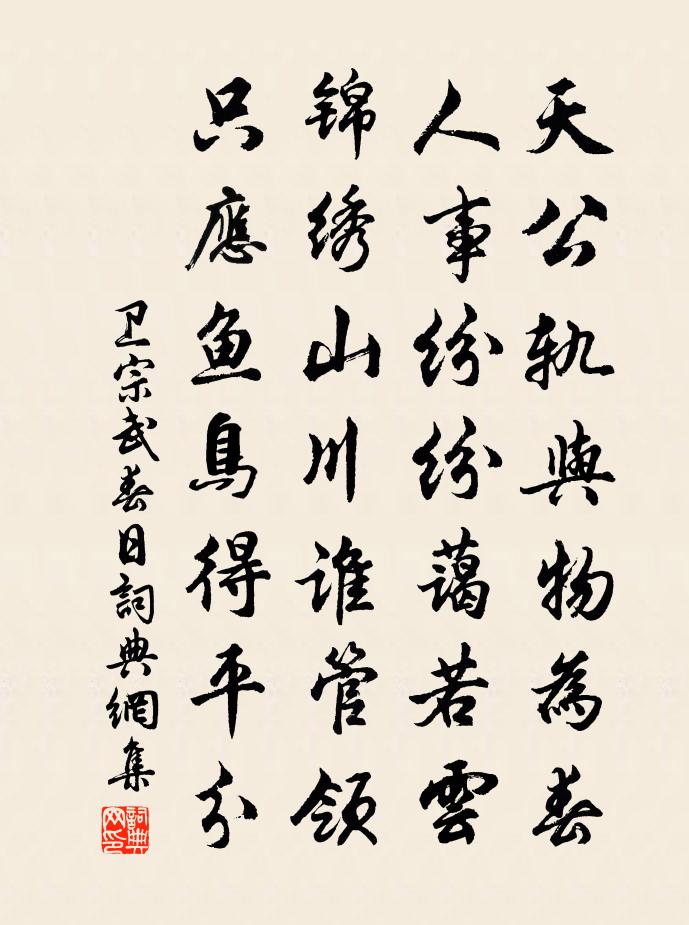 天公軌與物為春
人事紛紛藹若雲
锦绣山川誰管領
只應鱼鳥得平分
卫宗武春日詞典網集
詞典网印